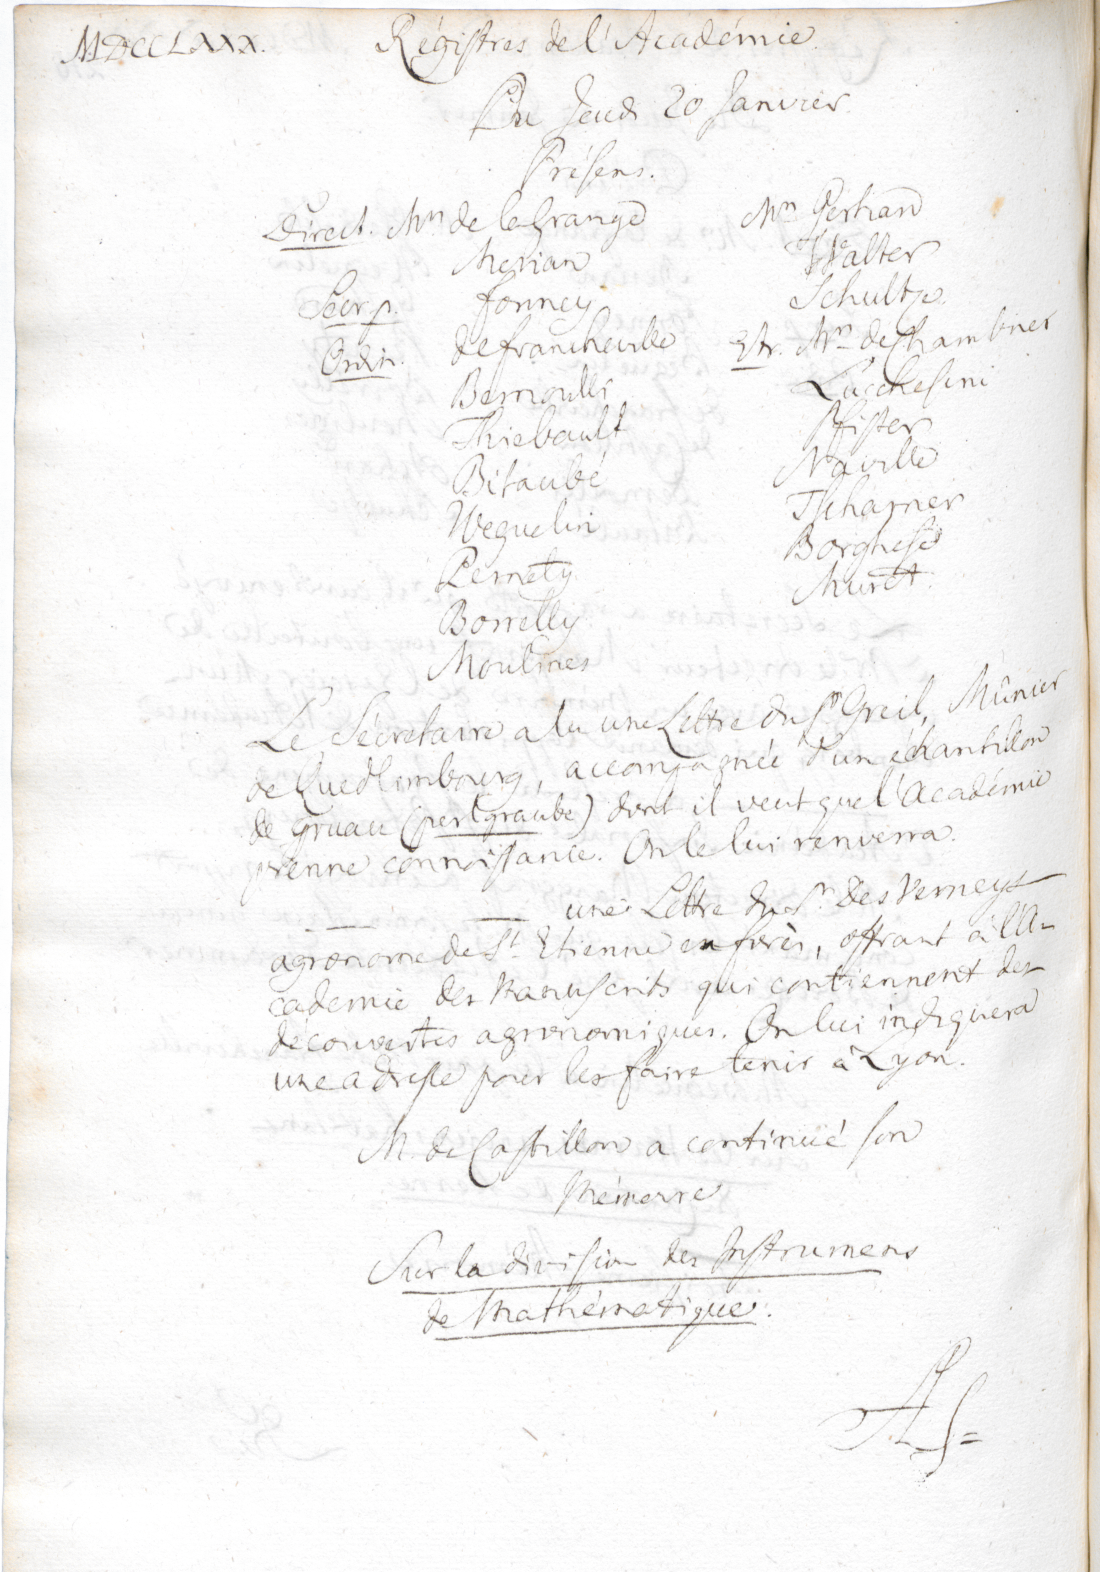 MDCCLXXX.
Régistres de l'Académie.
Du Jeudi 20 Janvier.
Présens.
Direct. Mrs de la Grange
Merian
Secr. p. formey
Ordin. de francheville
Bernoulli
Thiebault
Bitaubé
Weguelin
Pernety
Borrelly
Moulines
Mrs Gerhard
Walter
Schultze.
Etr. Mrs de Chambrier
Lucchesini
Pfister
Naville
Tscharner
Borghese
Muret.
Le Sécretaire a lu une Lettre du Sr Greil, Mûnier
de Quedlimbourg, accompagnée d'un échantillon
de gruau (perlgraube) dont il veut que l'Académie
prenne connoissance. On le lui renverra.
une Lettre du Sr. Des Verneys
agronome de St. Etienne en forès, offrant à l'A-
cademie des Manuscrits qui contiennent des
découvertes agronomiques. On lui indiquera
une adresse pour les faire tenir à Lyon.
M. de Castillon a continué son
Mémoire
Sur la division des Instrumens
de Mathématique.